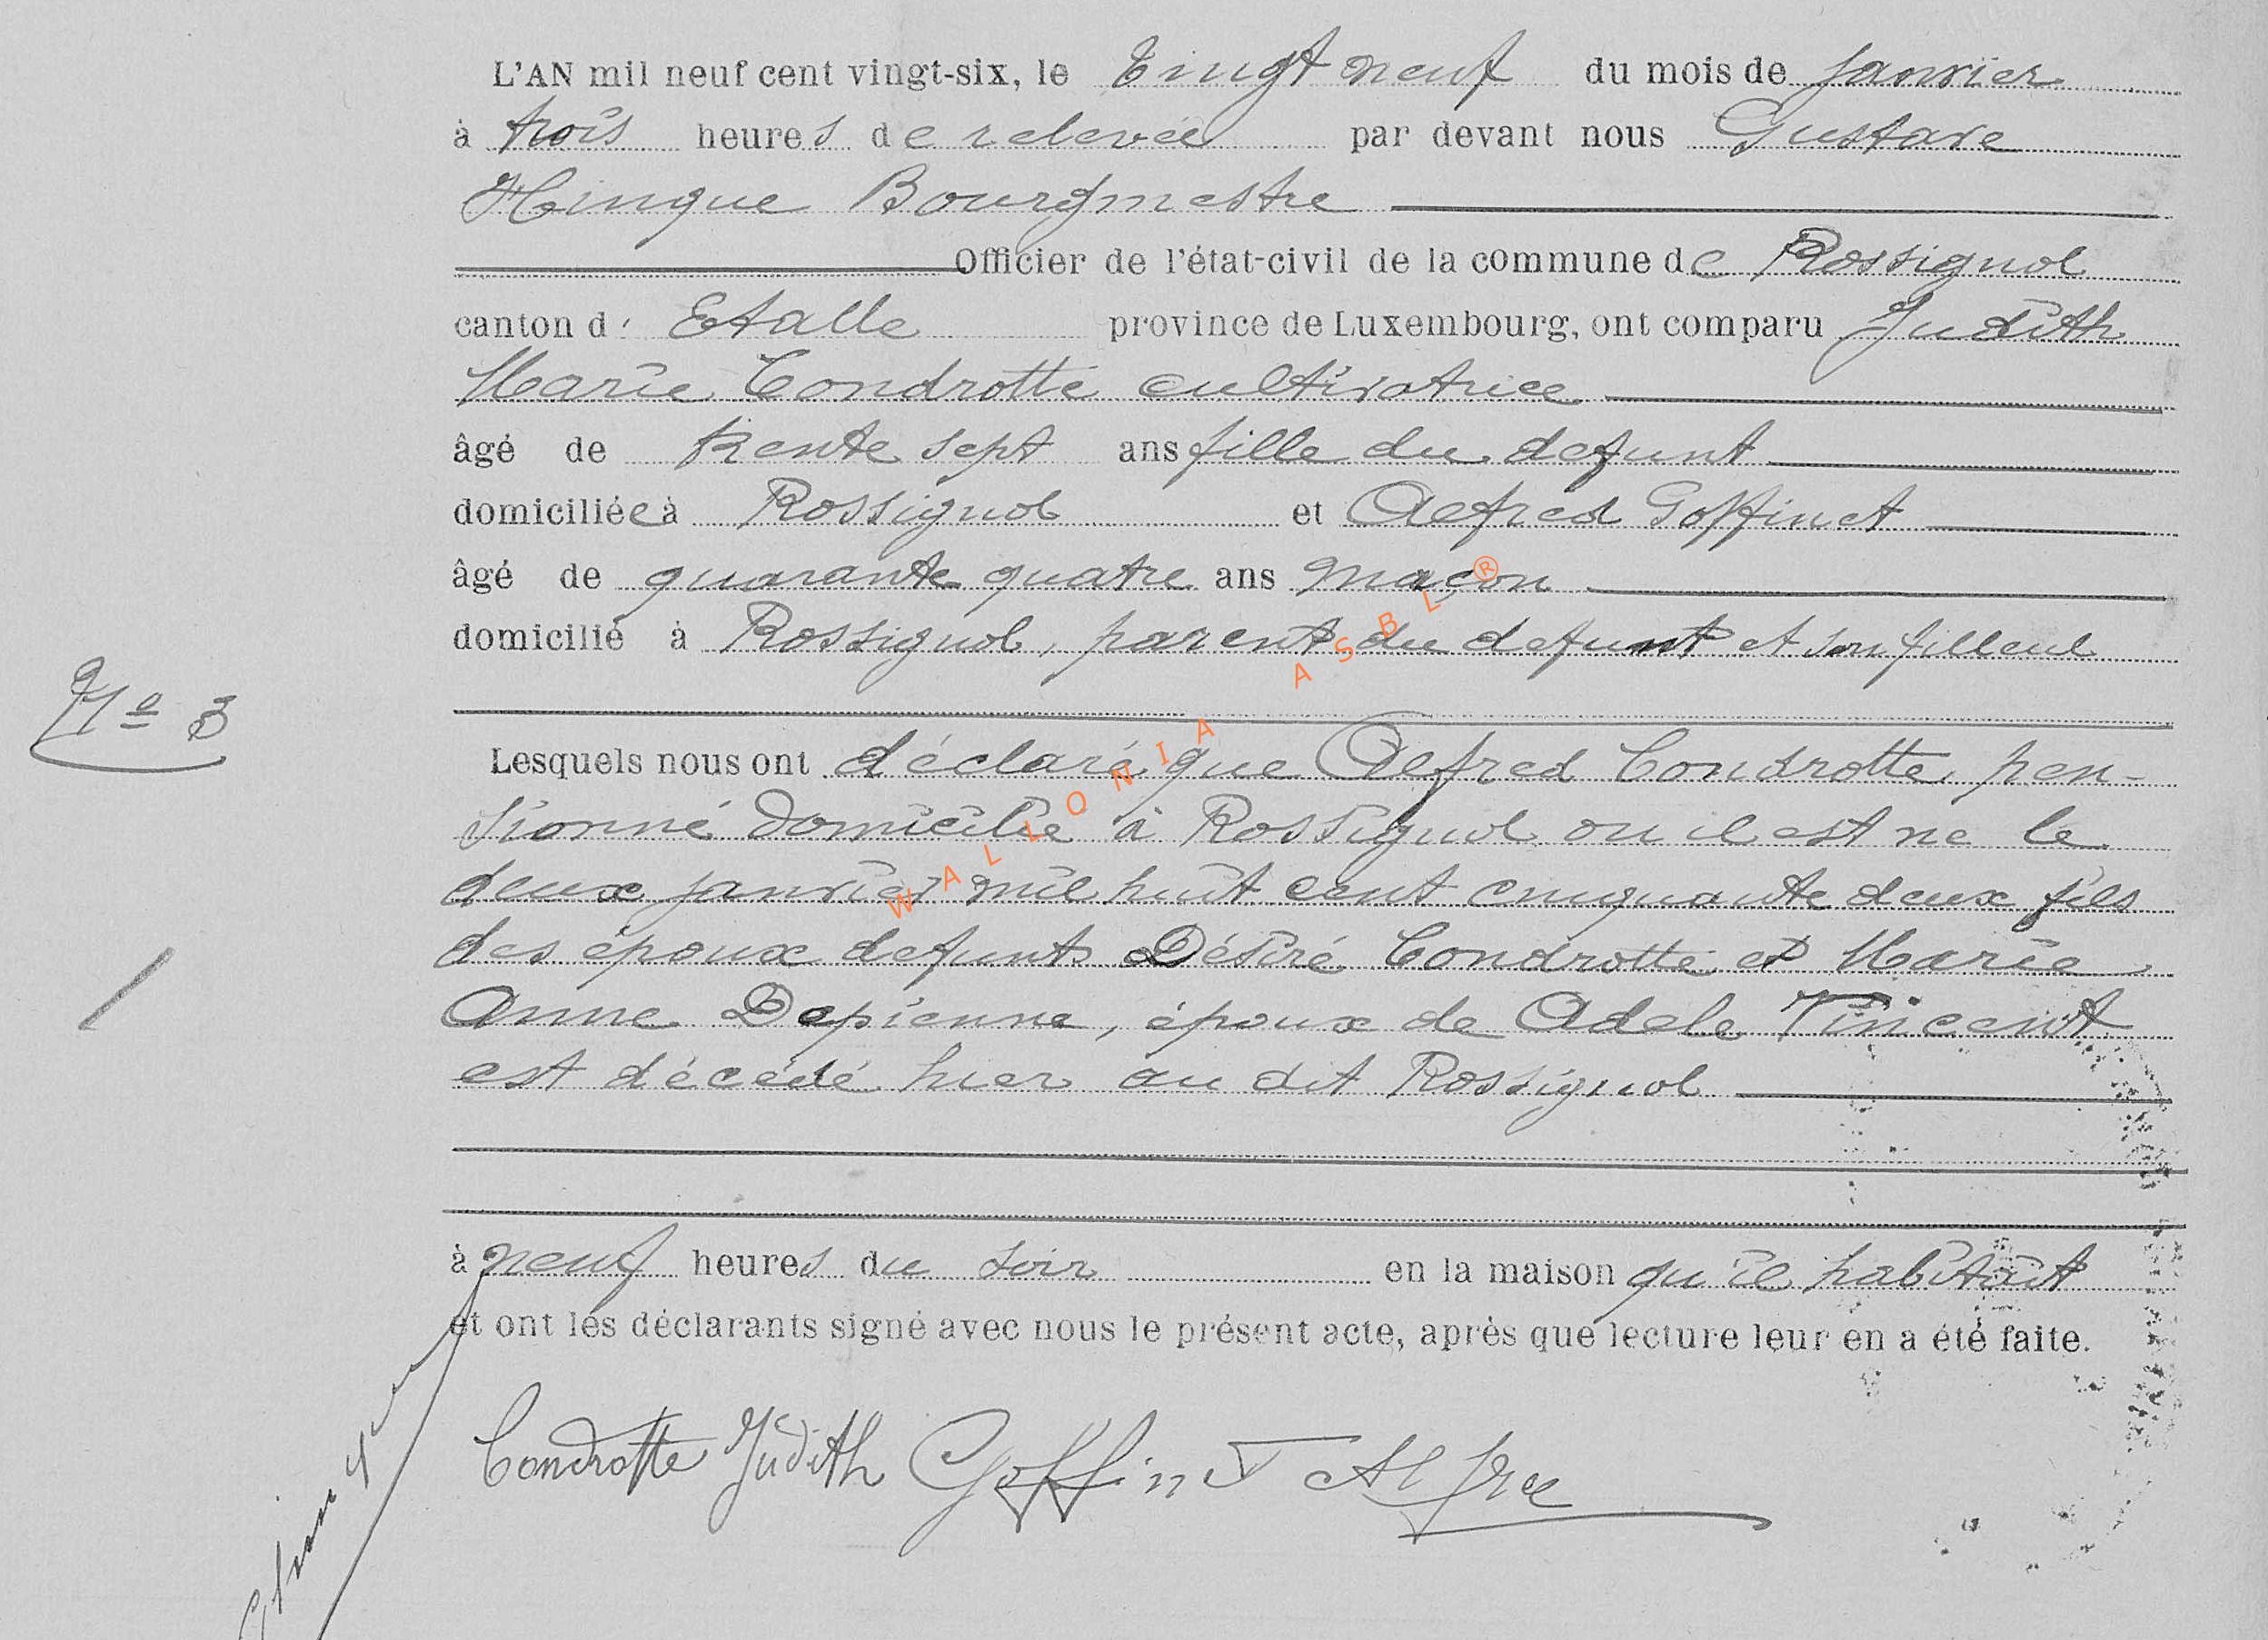 L'AN mil neuf cent vingt-six, le Vingt neuf du mois de Janvier
à trois heures de relevée par devant nous Gustave
Hinque Bourgmestre
Officier de l'état-civil de la commune de Rossignol
canton d' Etalle province de Luxembourg, ont comparu Judith
Marie Condrotte cultivatrice
âgé de trente sept ans fille du defunt
domiciliée à Rossignol et Alfred Goffinet
âgé de quarante quatre ans maçon
domicilié à Rossignol, parent du defunt et son filleul
Nº 3
Lesquels nous ont déclaré que Alfred Condrotte, pen-
sionné domicilié à Rossignol ou il est ne le
deux janvier mil huit cent cinquante deux fils
des époux defunts Désiré Condrotte et Marie
Anne Depienne, époux de Adele Vincent
est décédé hier au dit Rossignol
à neuf heures du soir en la maison qu'il habitait
et ont les déclarants signé avec nous le présent acte, après que lecture leur en a été faite.
Condrotte Judith Goffinet Alfre
WALLONIA ASBL ®